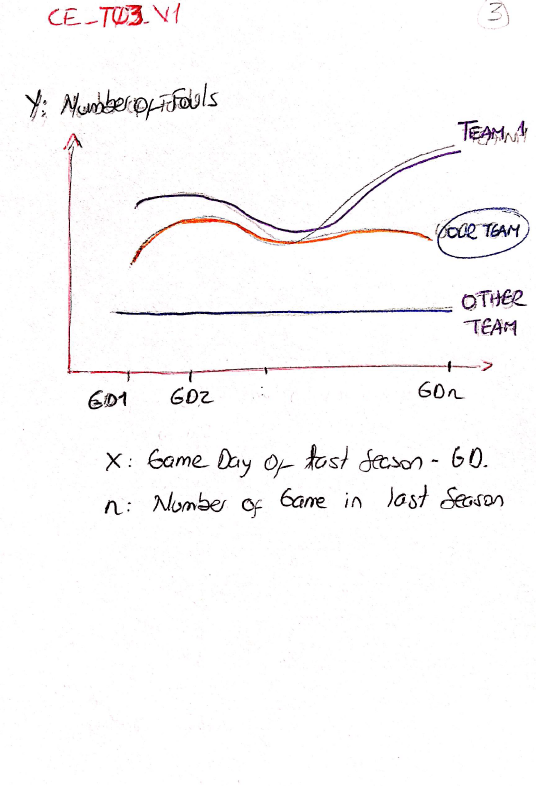 CE_T03_V1
3
Y: Number of Fouls
TEAM 1
OUR TEAM
OTHER
TEAM
GD1 GD2 GDn
X: Game Day of last Season - GD.
n: Number of Game in last Season